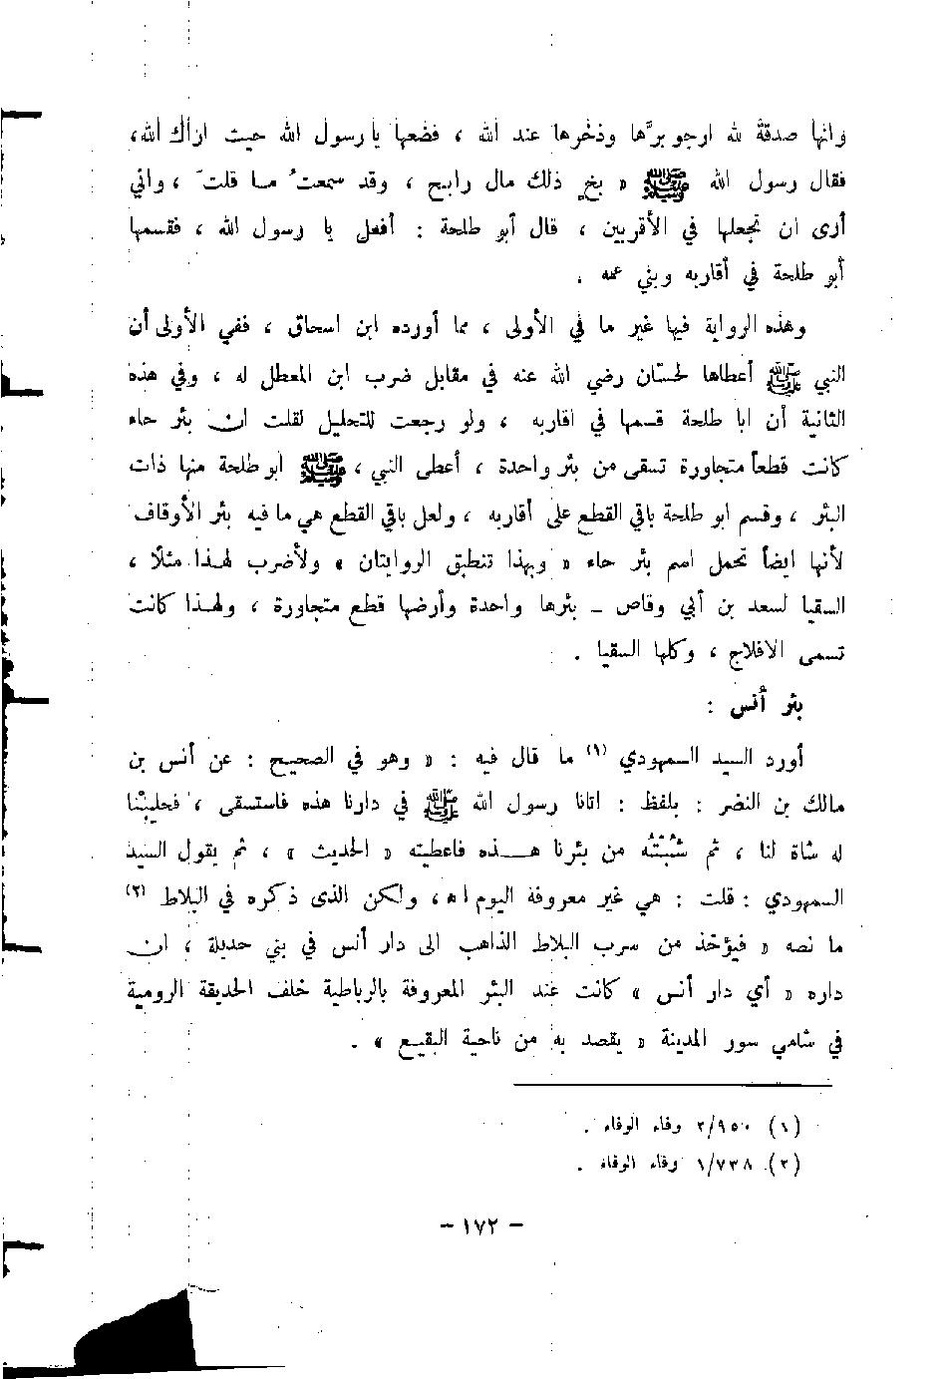 وانها صدقة لله ارجو برَّها وذخرها عند الله ، فضعها يا رسول الله حيث اراك الله،
فقال رسول الله ﷺ « بخٍ ذلك مال رابح ، وقد سمعتُ ما قلتَ ، واني
أرى ان تجعلها في الأقربين ، قال أبو طلحة : أفعل يا رسول الله ، فقسمها
أبو طلحة في أقاربه وبني عمه .
وهذه الرواية فيها غير ما في الأولى ، مما أورده ابن اسحاق ، ففي الأولى أن
النبي ﷺ أعطاها لحسّان رضي الله عنه في مقابل ضرب ابن المعطل له ، وفي هذه
الثانية أن ابا طلحة قسمها في اقاربه ، ولو رجعت للتحليل لقلت ان بئر حاء
كانت قطعاً متجاورة تسقى من بئر واحدة ، أعطى النبي ، ﷺ ابو طلحة منها ذات
البئر ، وقسم ابو طلحة باقي القطع على أقاربه ، ولعل باقي القطع هي ما فيه بئر الأوقاف
لأنها ايضاً تحمل اسم بئر حاء « وبهذا تنطبق الروايتان » ولأضرب لهذا مثلًا ،
السقيا لسعد بن أبي وقاص – بئرها واحدة وأرضها قطع متجاورة ، ولهذا كانت
تسمى الافلاج ، وكلها السقيا .
بئر أنس :
أورد السيد السمهودي (١) ما قال فيه : « وهو في الصحيح : عن أنس بن
مالك بن النضر : بلفظ : اتانا رسول الله ﷺ في دارنا هذه فاستسقى ، فحلبْنا
له شاة لنا ، ثم شُبْتُه من بئرنا هذه فاعطيته « الحديث » ، ثم يقول السيد
السمهودي : قلت : هي غير معروفة اليوم اه ، ولكن الذى ذكره في البلاط (٢)
ما نصه « فيؤخذ من سرب البلاط الذاهب الى دار أنس في بني حديلة ، ان
داره « أي دار أنس » كانت عند البئر المعروفة بالرباطية خلف الحديقة الرومية
في شامي سور المدينة « يقصد به من ناحية البقيع » .
(١) ٢/٩٥٠ وفاء الوفاء .
(٢) ١/٧٣٨ وفاء الوفاء .
– ١٧٢ –